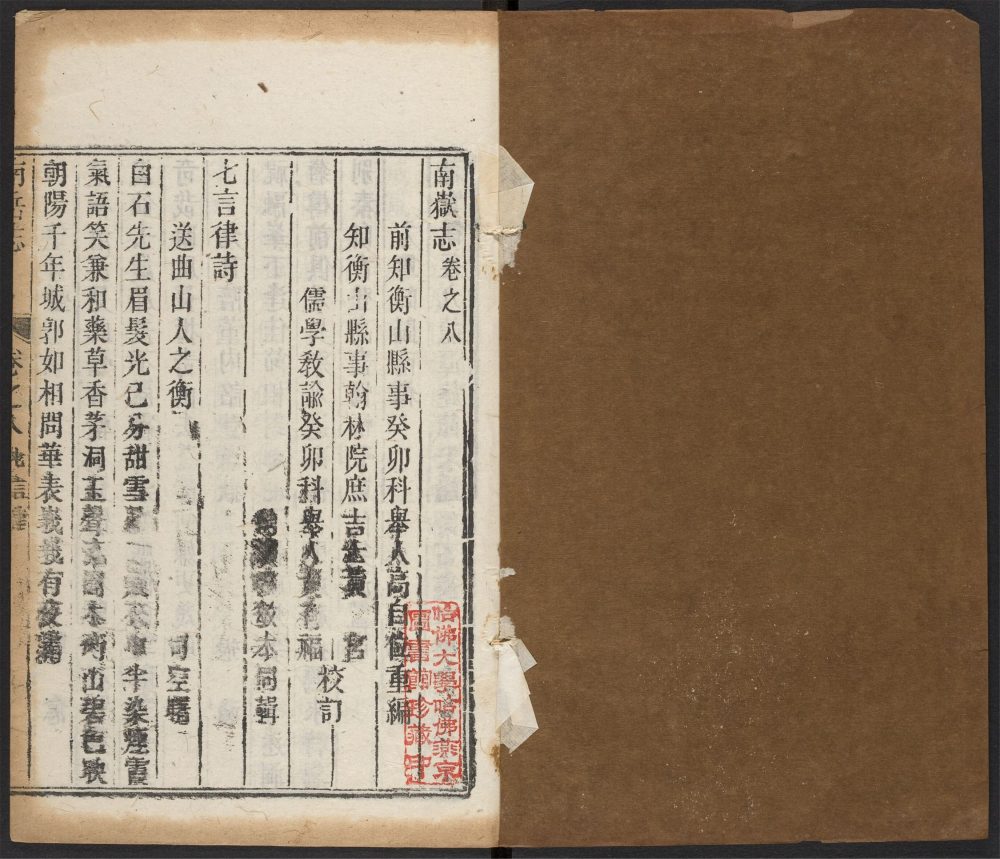 南嶽志 卷之八
前知衡山縣事癸卯科舉人高自位重編
知衡山縣事翰林院庶吉士黃宮
儒學教諭癸卯科舉人黃利福
校訂
本同輯
七言律詩
送曲山人之衡 司空曙
白石先生眉髮光已分甜雪 染煙霞
氣語笑兼和藥草香茅洞玉聲 山碧色映
朝陽千年城郭如相問華表峩峩有夜霜
南岳志 卷之八
哈佛大學哈佛燕京
圖書館珍藏印